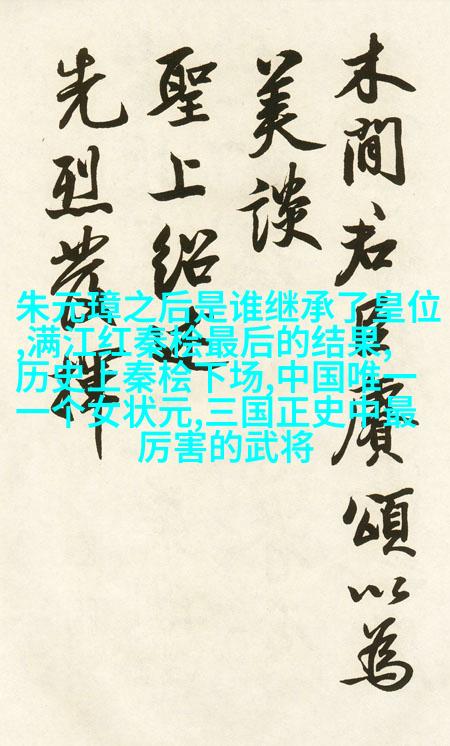 木間君臣賡頌以為
美談
聖上紹
先烈
朱元璋之后是谁继承了皇位
,满江红秦桧最后的结果,
历史上秦桧下场,中国唯一
一个女状元,三国正史中最
厉害的武将